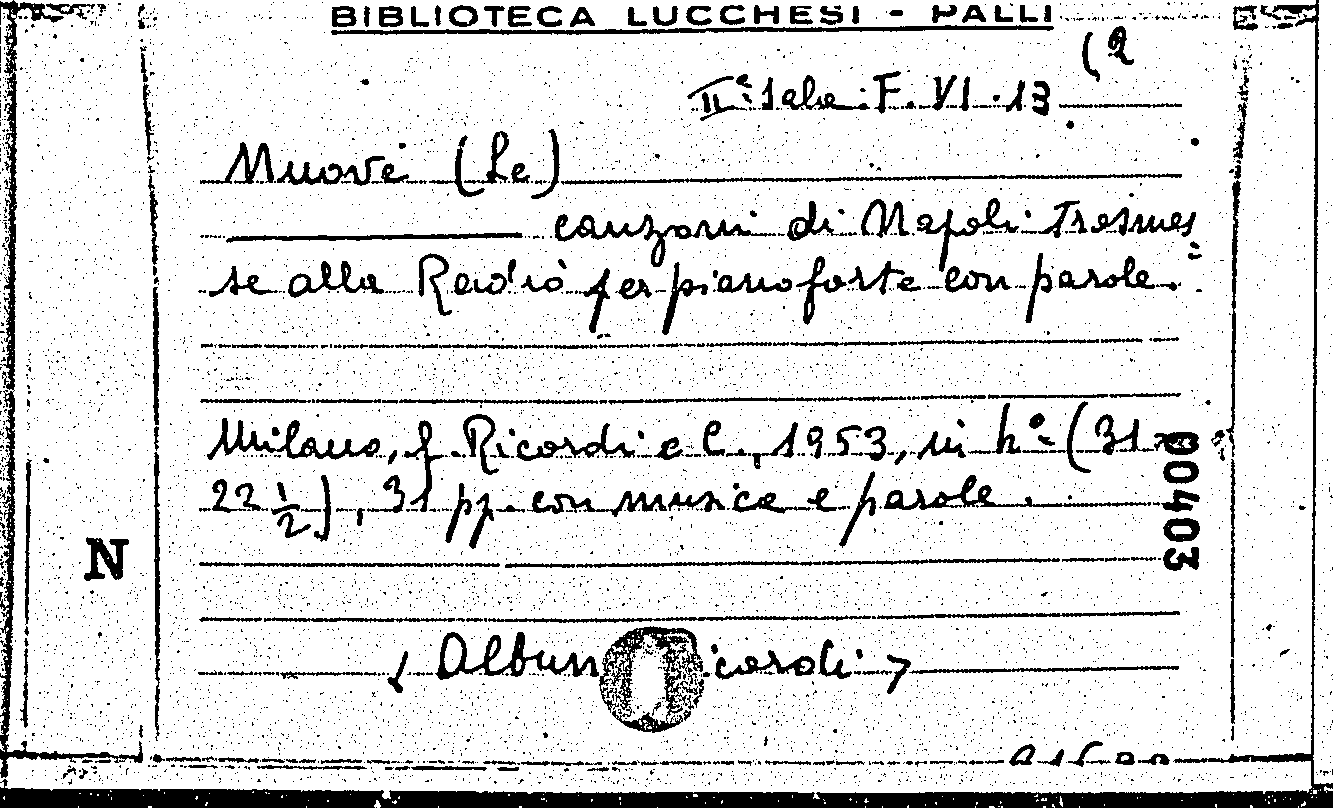 BIBLIOTECA LUCCHESI - PALLI
(2
IIª Sala. F. VI. 13
Nuove (Le)
canzoni di Napoli trasmes=
se alla Radio per pianoforte con parole.
Milano, G. Ricordi e C., 1953, in 4º (31 x
22 1/2), 31 pp. con musica e parole.
00403
N
< Album icordi >